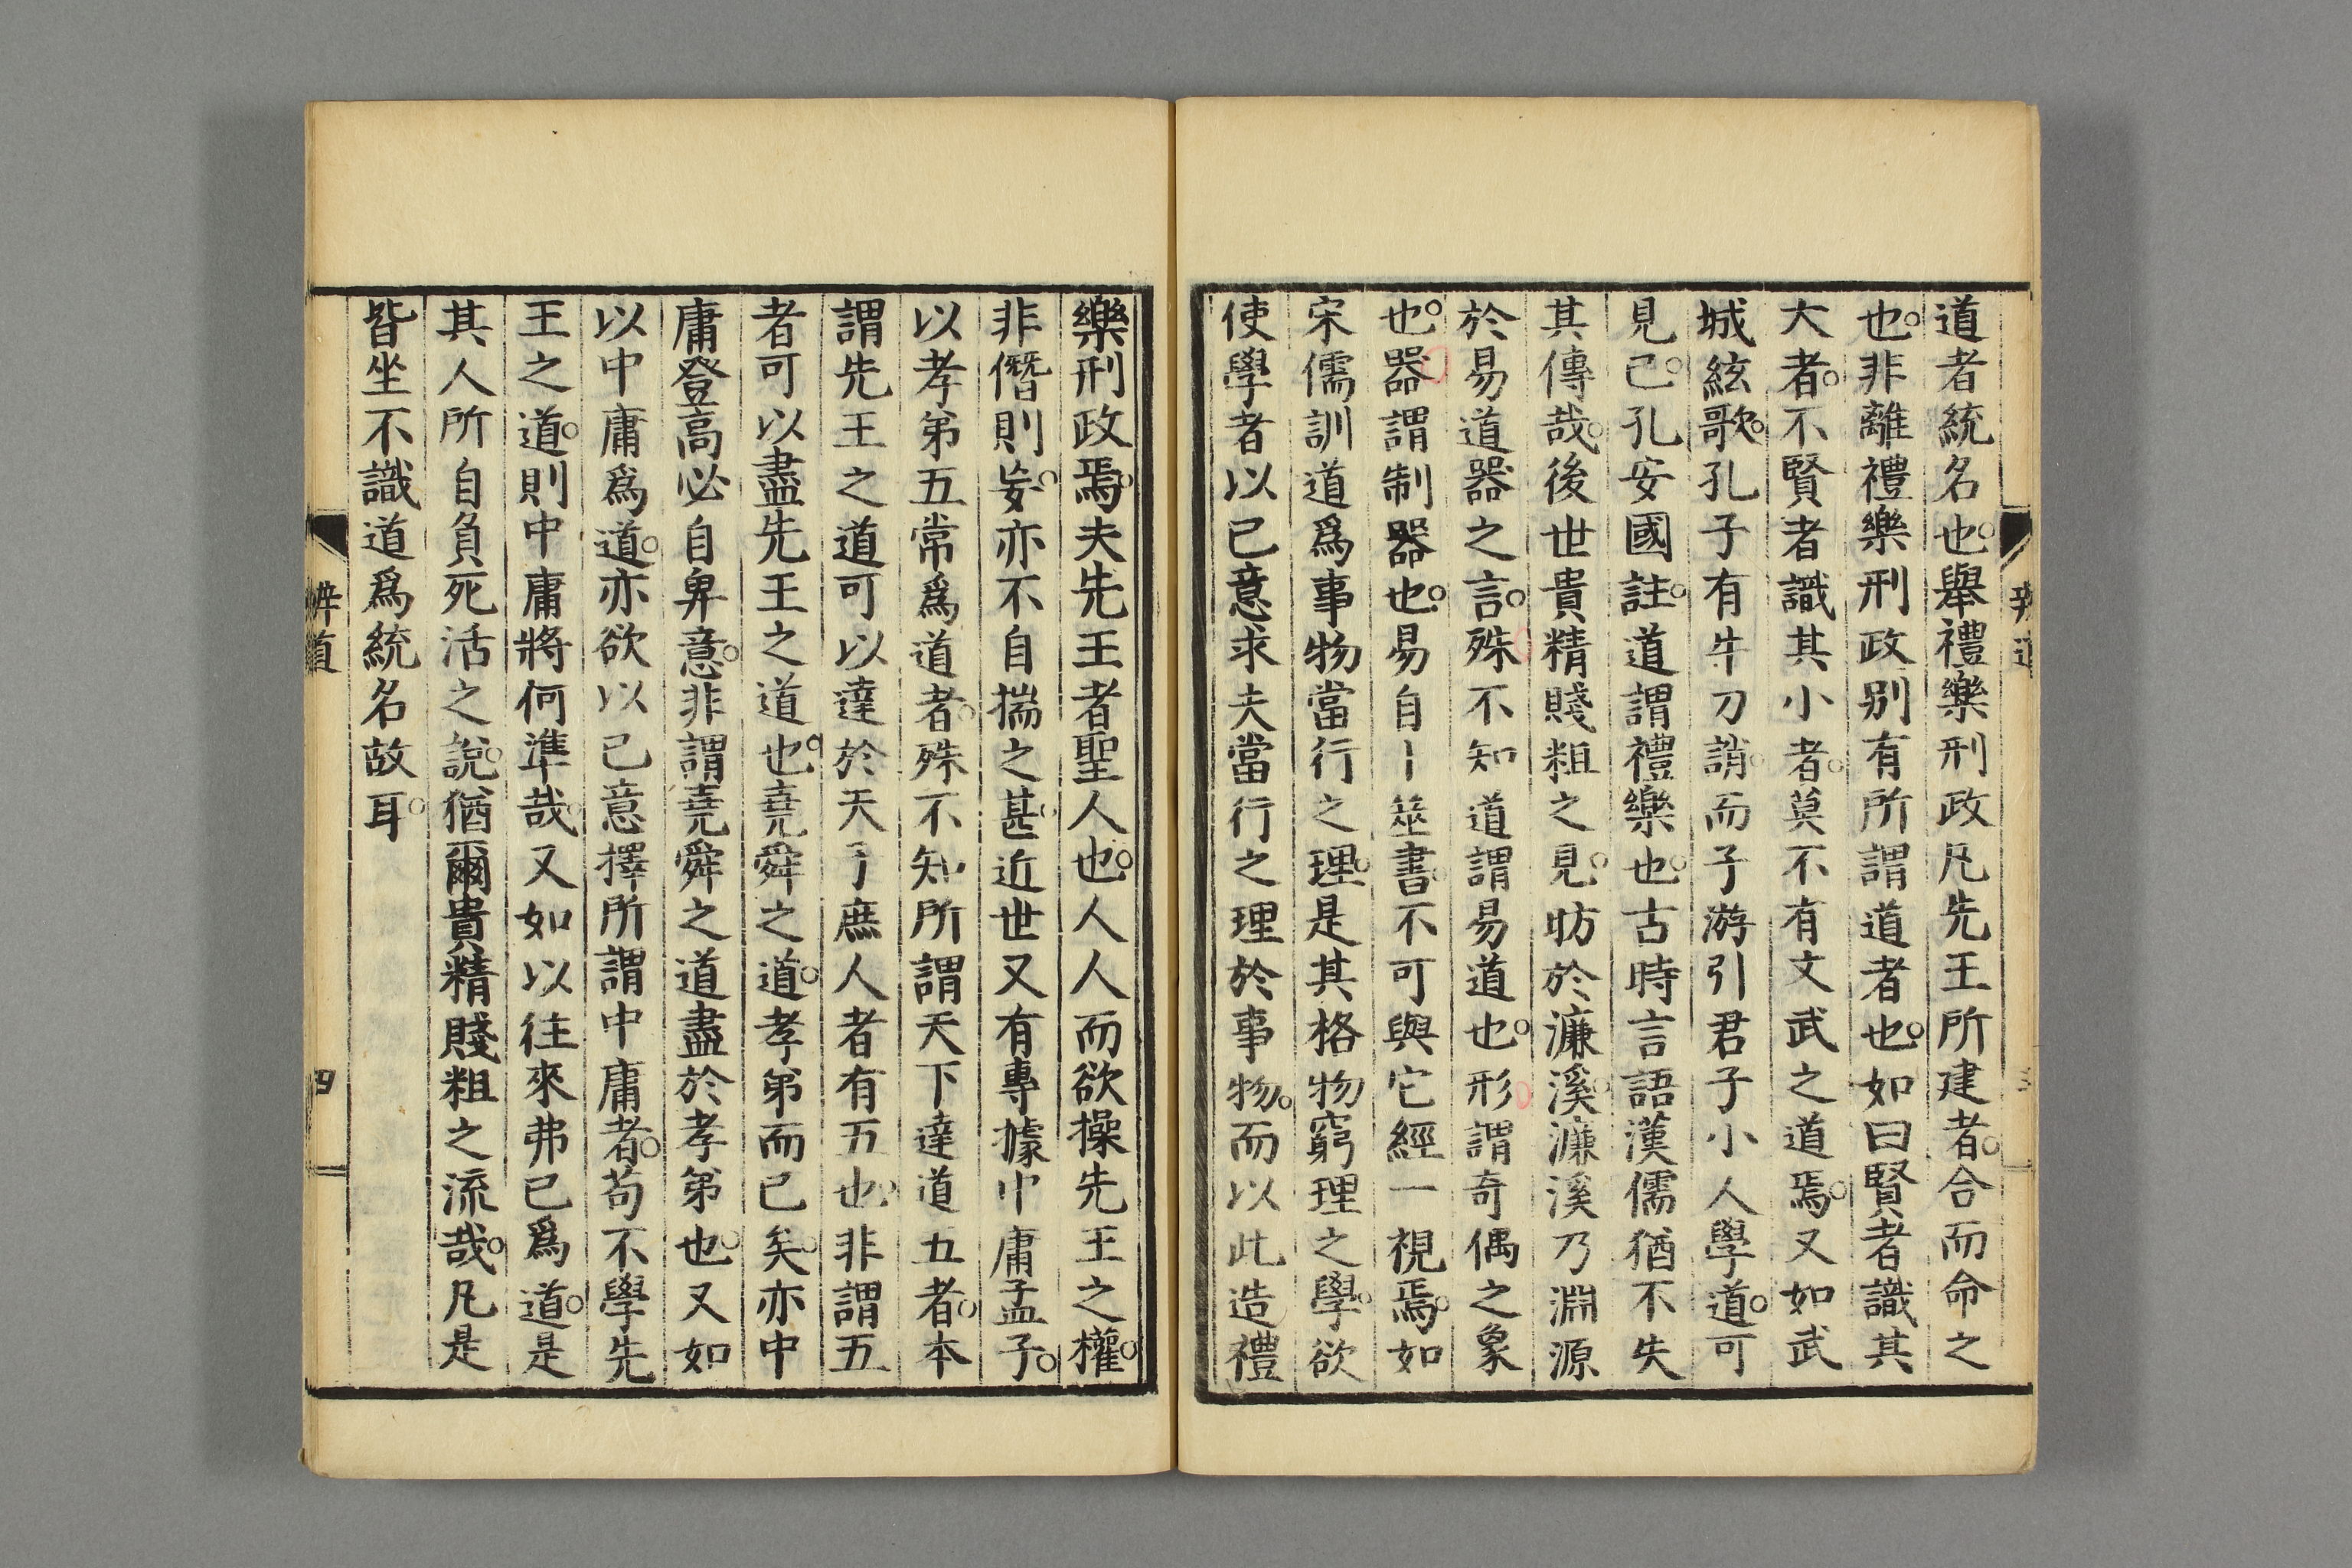 道者統名也。舉禮樂刑政凡先王所建者。合而命之
也。非離禮樂刑政別有所謂道者也。如曰賢者識其
大者。不賢者識其小者。莫不有文武之道焉。又如武
城絃歌。孔子有牛刀誚。而子游引君子小人學道。可
見已。孔安國註。道謂禮樂也。古時言語漢儒猶不失
其傳哉。後世貴精賤粗之見。昉於濂溪。濂溪乃淵源
於易道器之言。殊不知道謂易道也。形謂奇偶之象
也。器謂制器也。易自卜筮書。不可與它經一視焉。如
宋儒訓道爲事物當行之理。是其格物窮理之學。欲
使學者以已意求夫當行之理於事物。而以此造禮
樂刑政焉。夫先王者聖人也。人人而欲操先王之權。
非僭則妄。亦不自揣之甚。近世又有專據中庸孟子。
以孝弟五常爲道者。殊不知所謂天下達道五者。本
謂先王之道可以達於天子庶人者有五也。非謂五
者可以盡先王之道也。堯舜之道。孝弟而已矣。亦中
庸登高必自卑意。非謂堯舜之道盡於孝弟也。又如
以中庸爲道。亦欲以已意擇所謂中庸者。苟不學先
王之道。則中庸將何準哉。又如以往來弗已爲道。是
其人所自負死活之說。猶爾貴精賤粗之流哉。凡是
皆坐不識道爲統名故耳。
辨道
四